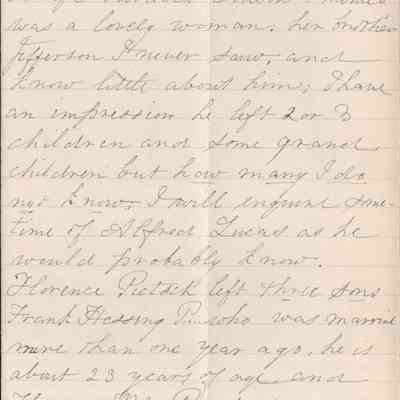 was a lovely woman. her brother
Jefferson I never saw, and
know little about him; I have
an impression he left 2 or 3
children and some grand
children but how many I do
not know. I will enquire some-
time of Alfred Lucas as he
would probably know.
Florence Pietsch left three sons
Frank Hessing P. who was married
more than one year ago. he is
about 23 years of age. and